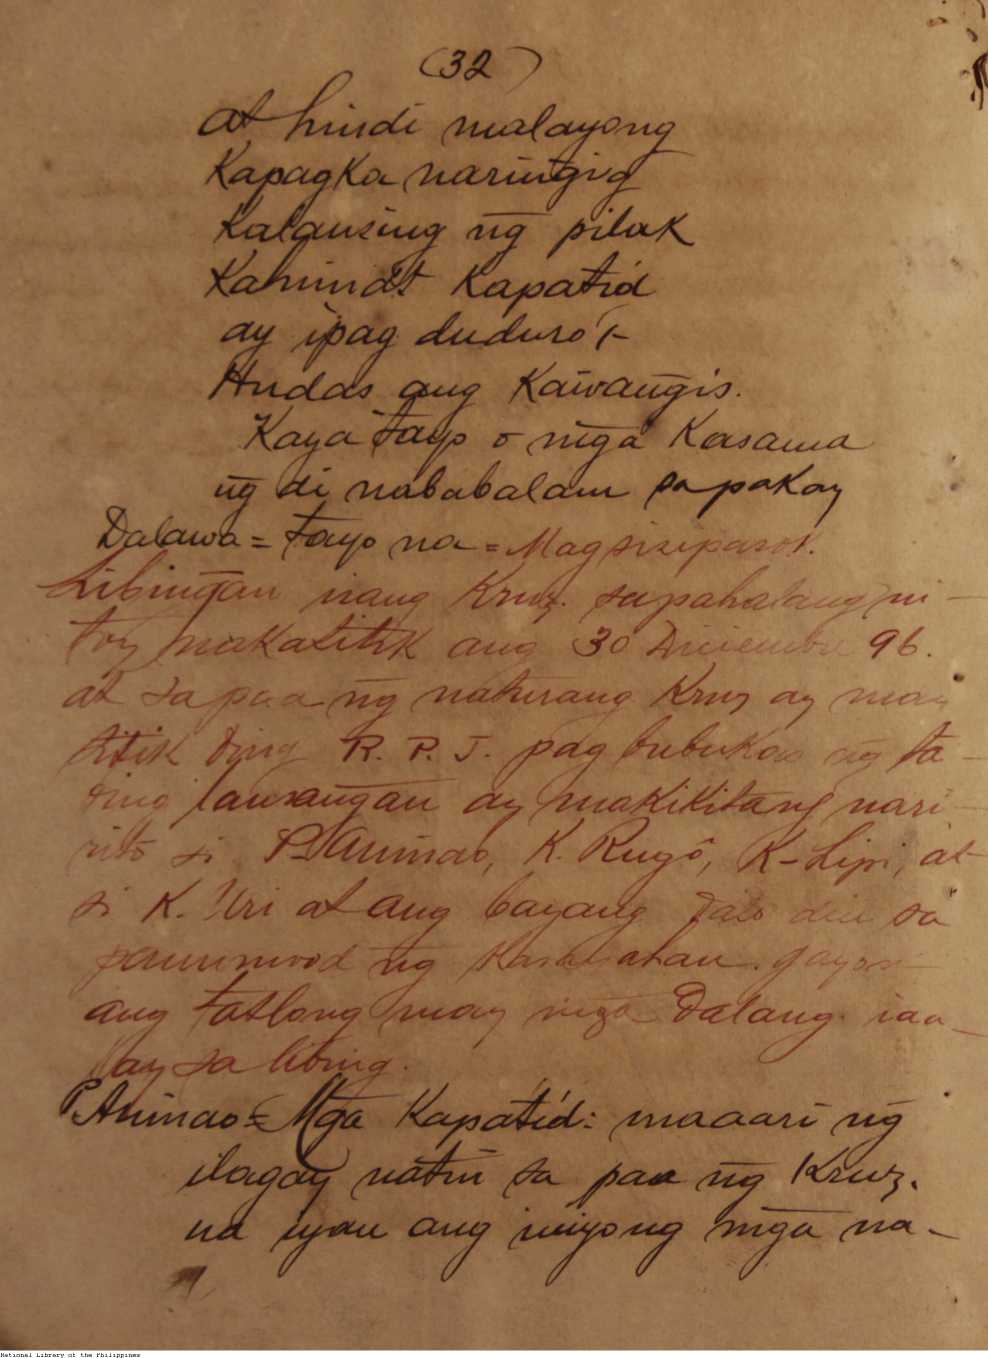 (32)
at hindi malayong
Kapagka naringig
kalansing ng̃ pilak
Kahimdt Kapatid
ay ipag duduro't
Hudas ang Kawang̃is.
Kaya tayo o mg̃a Kasama
ng̃ di nababalam sa pakay
Dalawa = tayo na = Magsisipasok.
Libing̃an isang Kruz. sa pahalang ni-
toy makatitik ang 30 Diciembre 96.
at sa paa ng̃ naturang Kruz ay may
titik ding R. P. J. pag bubukas ng̃ ta-
bing lansang̃an ay makikitang nari-
rito si P. Animao, K. Rugô, K-Lipi, at
si K. Uri at ang bayang din sa
panunuod ng̃ gayon
ang tatlong may mg̃a Dalang iaa-
lay sa libing.
P. Animao = Mg̃a Kapatid: maaari ng̃
ilagay natin sa paa ng̃ Kruz.
na iyan ang iniyong mg̃a na-
National Library of the Philippines